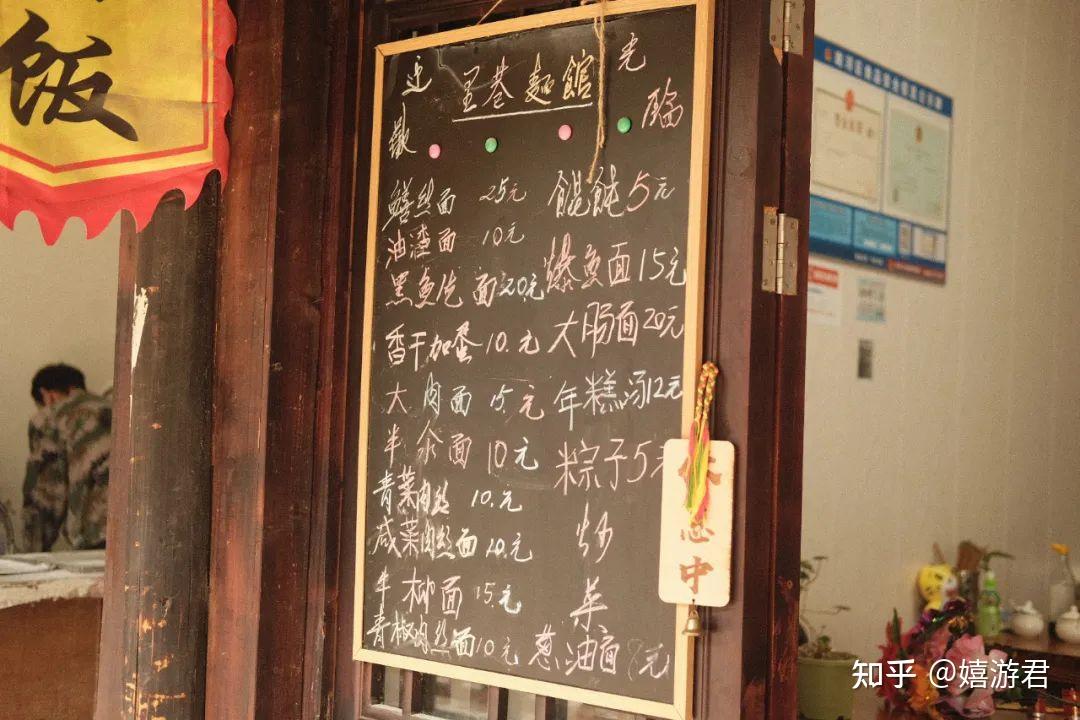 饭
里巷麵館
光
臨
鳝丝面 25元
油渣面 10元
黑鱼片面 20元
香干加蛋 10.元
大肉面 15.元
半汆面 10元
青菜肉丝 10.元
咸菜肉丝面 10.元
牛柳面 15.元
青椒肉丝面 10元
馄饨5元
爆鱼面15元
大肠面20元
年糕汤12元
粽子5元
炒
菜
葱油面 8元
休
息
中
知乎 @嬉游君